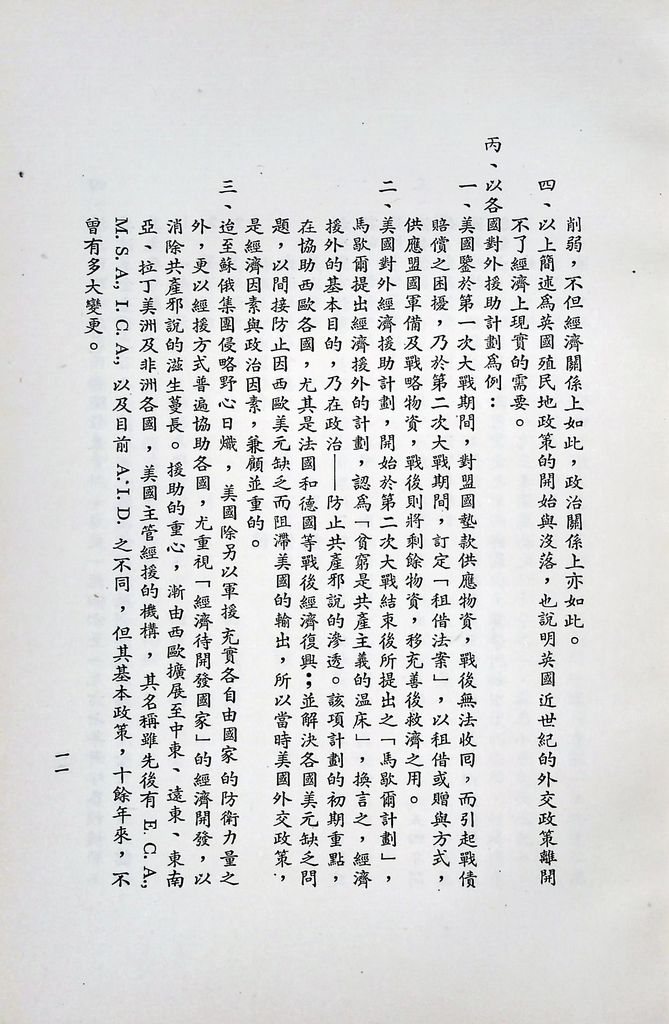 削弱，不但經濟關係上如此，政治關係上亦如此。
四、以上簡述爲英國殖民地政策的開始與沒落，也說明英國近世紀的外交政策離開
不了經濟上現實的需要。
丙、以各國對外援助計劃爲例：
一、美國鑒於第一次大戰期間，對盟國墊款供應物資，戰後無法收回，而引起戰債
賠償之困擾，乃於第二次大戰期間，訂定「租借法案」，以租借或贈與方式，
供應盟國軍備及戰略物資，戰後則將剩餘物資，移充善後救濟之用。
二、美國對外經濟援助計劃，開始於第二次大戰結束後所提出之「馬歇爾計劃」，
馬歇爾提出經濟援外的計劃，認爲「貧窮是共產主義的温床」，換言之，經濟
援外的基本目的，乃在政治——防止共產邪說的滲透。該項計劃的初期重點，
在協助西歐各國，尤其是法國和德國等戰後經濟復興；並解決各國美元缺乏問
題，以間接防止因西歐美元缺乏而阻滯美國的輸出，所以當時美國外交政策，
是經濟因素與政治因素，兼顧並重的。
三、迨至蘇俄集團侵略野心日熾，美國除另以軍援充實各自由國家的防衛力量之
外，更以經援方式普遍協助各國，尤重視「經濟待開發國家」的經濟開發，以
消除共產邪說的滋生蔓長。援助的重心，漸由西歐擴展至中東、遠東、東南
亞、拉丁美洲及非洲各國，美國主管經援的機構，其名稱雖先後有 E.C.A.,
M.S.A., I.C.A., 以及目前 A.I.D. 之不同，但其基本政策，十餘年來，不
曾有多大變更。
一一